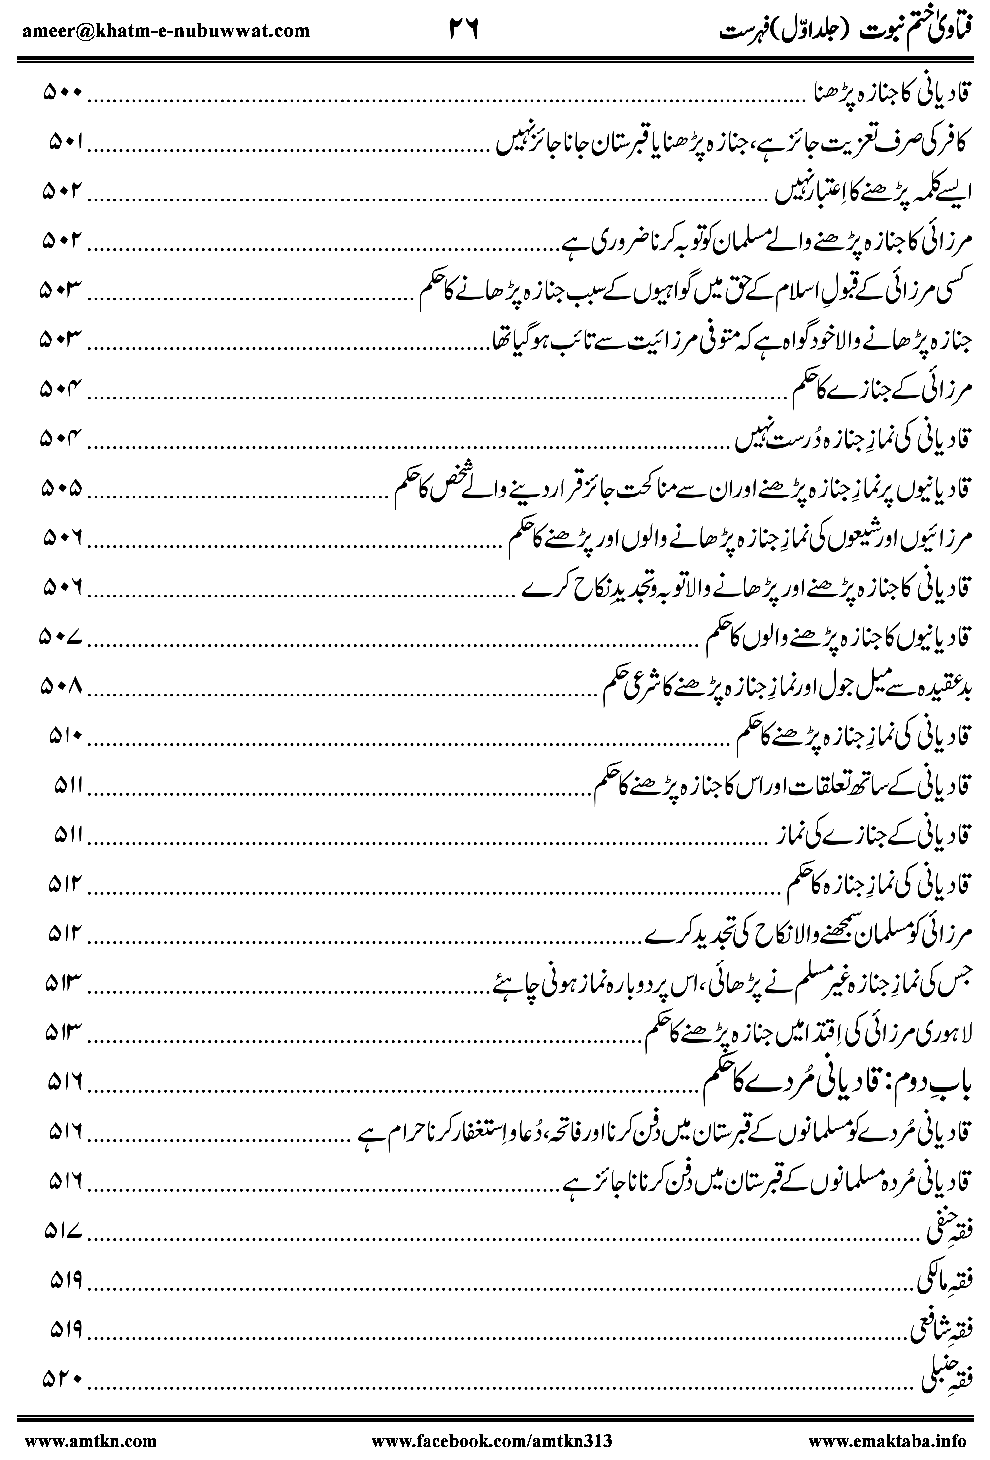 فتاویٰ ختم نبوت (جلد اوّل) فہرست ۲۶ ameer@khatm-e-nubuwwat.com
قادیانی کا جنازہ پڑھنا ۵۰۰
کافر کی صرف تعزیت جائز ہے، جنازہ پڑھنا یا قبرستان جانا جائز نہیں ۵۰۱
ایسے کلمہ پڑھنے کا اِعتبار نہیں ۵۰۲
مرزائی کا جنازہ پڑھنے والے مسلمان کو توبہ کرنا ضروری ہے ۵۰۲
کسی مرزائی کے قبولِ اسلام کے حق میں گواہیوں کے سبب جنازہ پڑھانے کا حکم ۵۰۳
جنازہ پڑھانے والا خود گواہ ہے کہ متوفی مرزائیت سے تائب ہوگیا تھا ۵۰۳
مرزائی کے جنازے کا حکم ۵۰۴
قادیانی کی نمازِ جنازہ دُرست نہیں ۵۰۴
قادیانیوں پر نمازِ جنازہ پڑھنے اور ان سے مناکحت جائز قرار دینے والے شخص کا حکم ۵۰۵
مرزائیوں اور شیعوں کی نمازِ جنازہ پڑھانے والوں اور پڑھنے کا حکم ۵۰۶
قادیانی کا جنازہ پڑھنے اور پڑھانے والا توبہ و تجدیدِ نکاح کرے ۵۰۶
قادیانیوں کا جنازہ پڑھنے والوں کا حکم ۵۰۷
بدعقیدہ سے میل جول اور نمازِ جنازہ پڑھنے کا شرعی حکم ۵۰۸
قادیانی کی نمازِ جنازہ پڑھنے کا حکم ۵۱۰
قادیانی کے ساتھ تعلقات اور اس کا جنازہ پڑھنے کا حکم ۵۱۱
قادیانی کے جنازے کی نماز ۵۱۱
قادیانی کی نمازِ جنازہ کا حکم ۵۱۲
مرزائی کو مسلمان سمجھنے والا نکاح کی تجدید کرے ۵۱۲
جس کی نمازِ جنازہ غیرمسلم نے پڑھائی، اس پر دوبارہ نماز ہونی چاہئے ۵۱۳
لاہوری مرزائی کی اِقتدا میں جنازہ پڑھنے کا حکم ۵۱۳
بابِ دوم: قادیانی مُردے کا حکم ۵۱۶
قادیانی مُردے کو مسلمانوں کے قبرستان میں دفن کرنا اور فاتحہ، دُعا و اِستغفار کرنا حرام ہے ۵۱۶
قادیانی مُردہ مسلمانوں کے قبرستان میں دفن کرنا ناجائز ہے ۵۱۶
فقہِ حنفی ۵۱۷
فقہِ مالکی ۵۱۹
فقہِ شافعی ۵۱۹
فقہِ حنبلی ۵۲۰
www.amtkn.com www.facebook.com/amtkn313 www.emaktaba.info